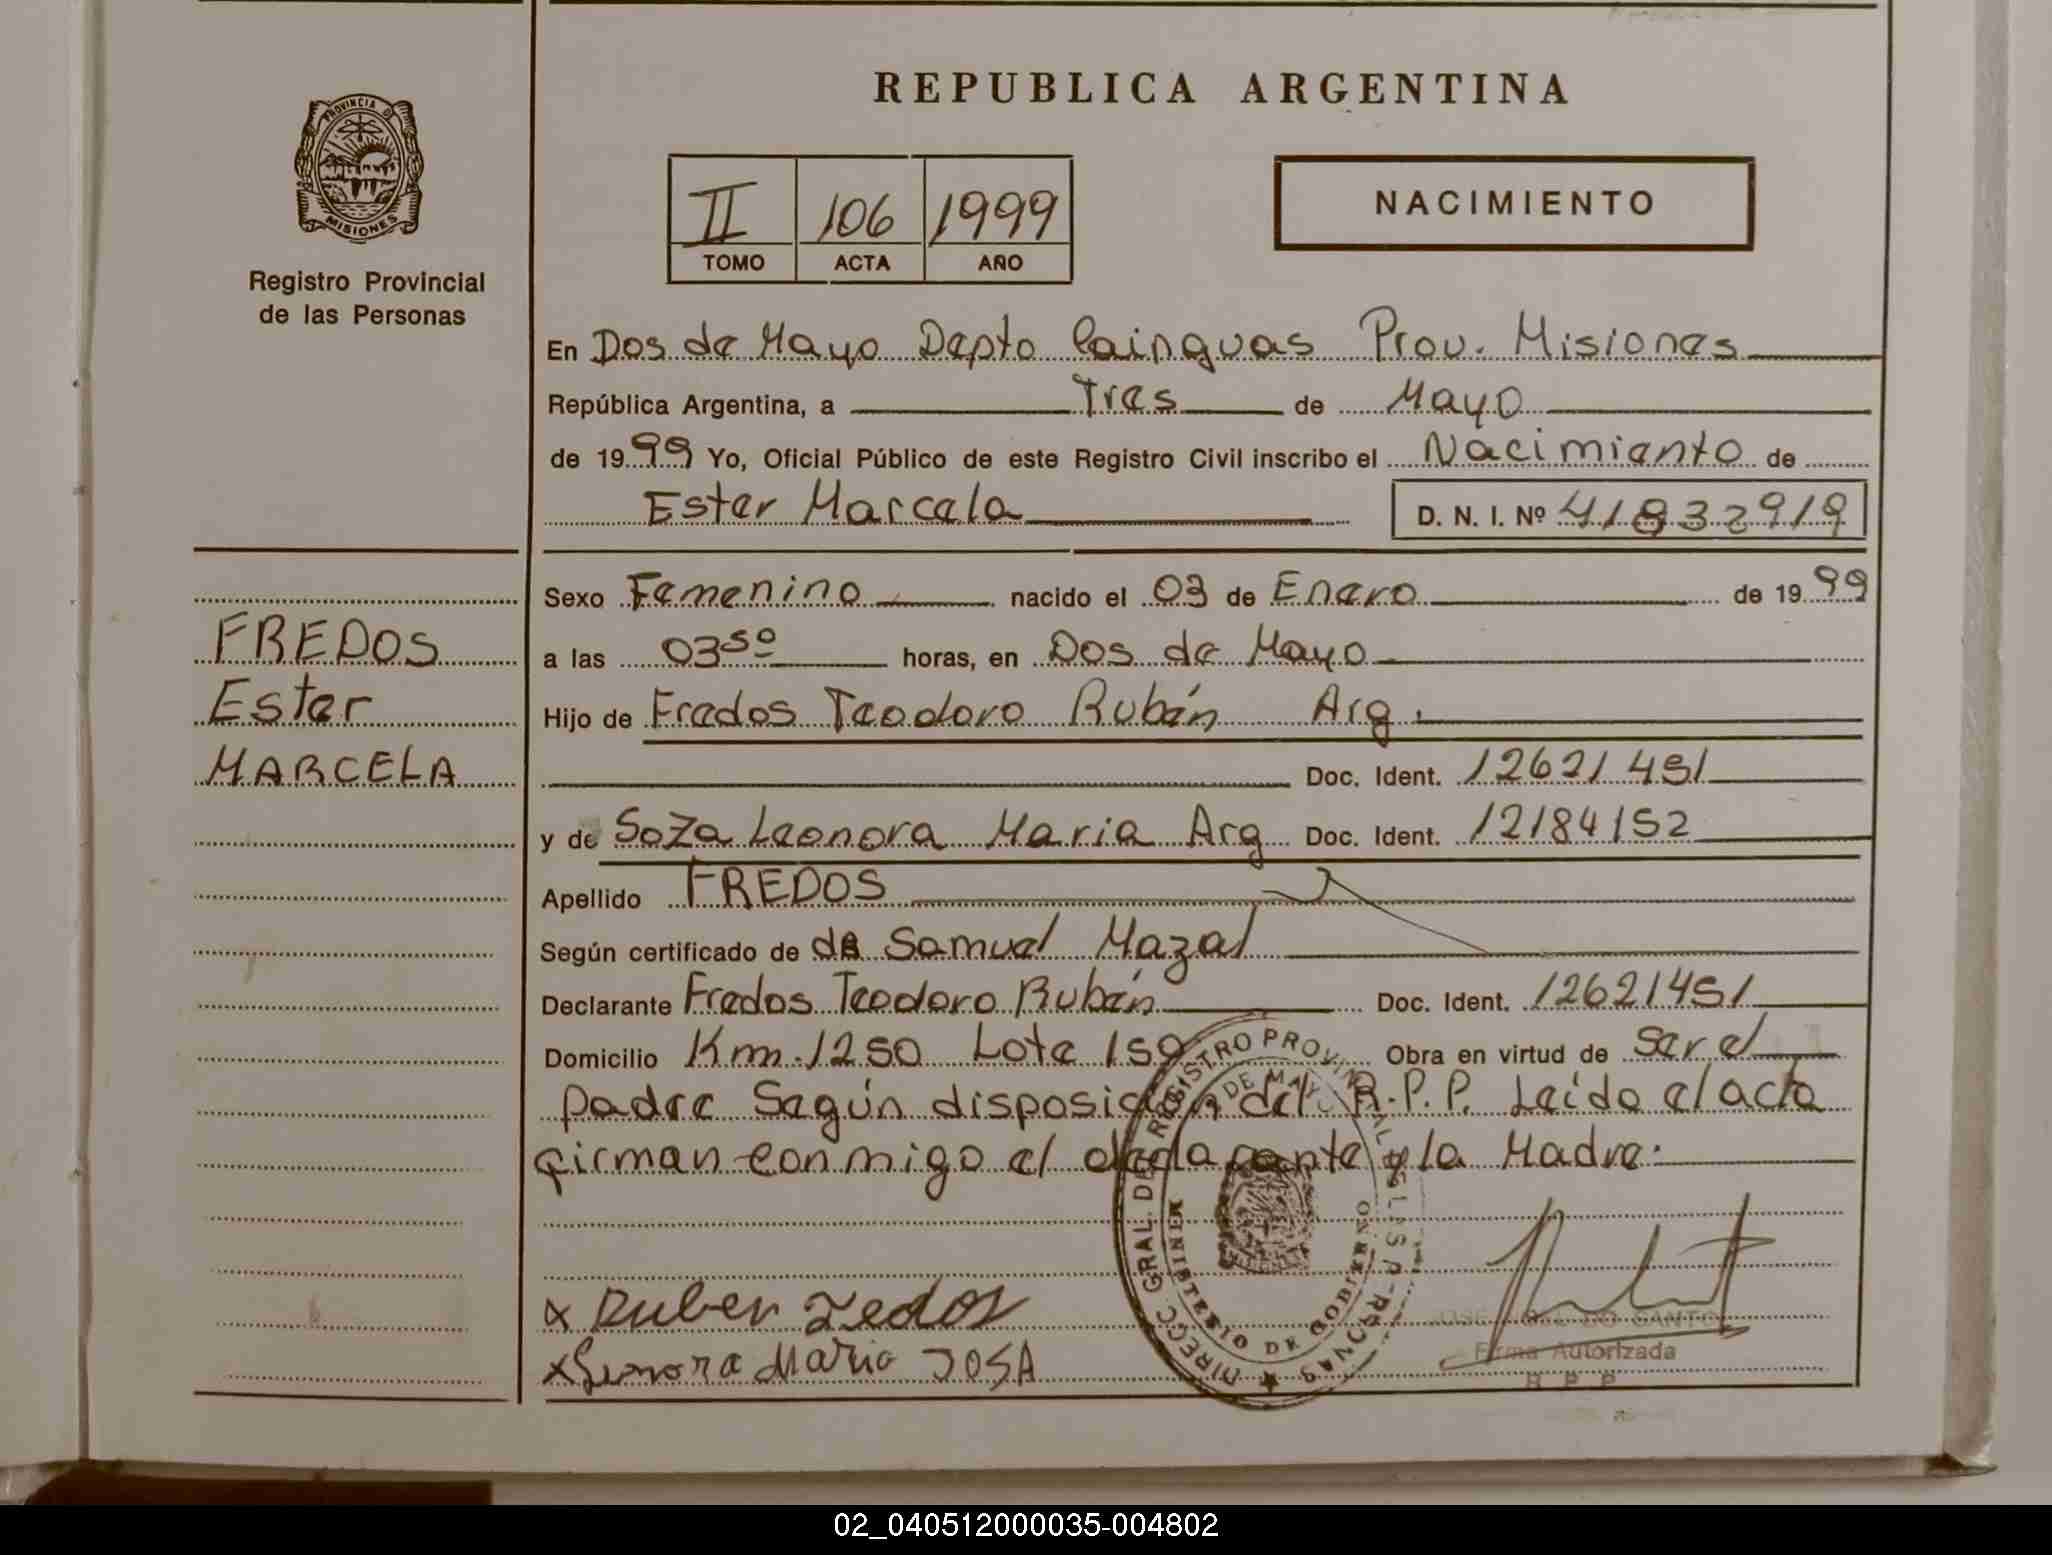 REPUBLICA ARGENTINA
PROVINCIA DE
MISIONES
Registro Provincial
de las Personas
II 106 1999
TOMO ACTA AÑO
NACIMIENTO
En Dos de Mayo Depto Cainguas Prov. Misiones
República Argentina, a Tres de Mayo
de 1999 Yo, Oficial Público de este Registro Civil inscribo el Nacimiento de
Ester Marcela D. N. I. Nº 41832919
Sexo Femenino nacido el 03 de Enero de 1999
a las 03 50 horas, en Dos de Mayo
Hijo de Fredos Teodoro Rubén Arg.
Doc. Ident. 12621451
y de Soza Leonora Maria Arg Doc. Ident. 12184152
Apellido FREDOS
Según certificado de de Samuel Mazal
Declarante Fredos Teodoro Rubén Doc. Ident. 12621451
Domicilio Km. 1250 Lote 150 Obra en virtud de ser el
padre Según disposición del R.P.P. Leído el acta
firman conmigo el declarante y la Madre.
FREDOS
Ester
MARCELA
x Ruben Fedos
x Lenora Maria SOSA
DIRECC GRAL. DEL REGISTRO PROVINCIAL
MINISTERIO DE GOBIERNO
Firma Autorizada
R P P
02_040512000035-004802